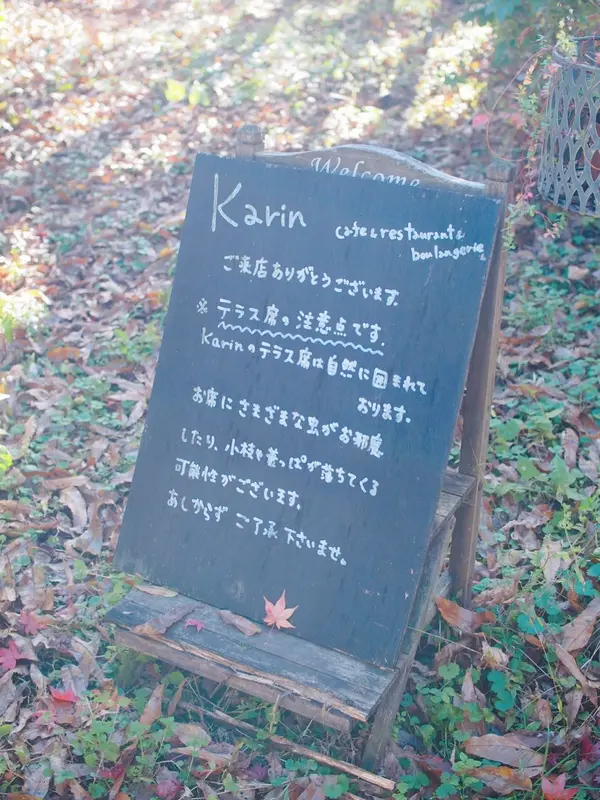 Welcome
Karin
cafe & restaurant &
boulangerie
ご来店ありがとうございます。
※ テラス席の注意点です。
Karinのテラス席は自然に囲まれて
おります。
お席にさまざまな虫がお邪魔
したり、小枝や葉っぱが落ちてくる
可能性がございます。
あしからず ご了承 下さいませ。